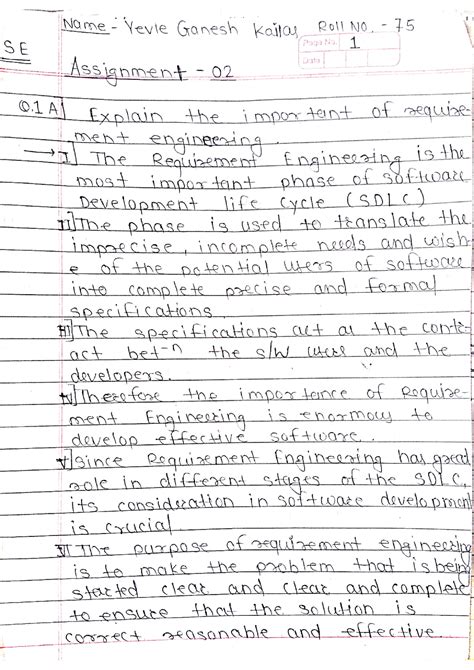 Name - Yevle Ganesh Kailas Roll No. - 75
SE
Page No. 1
Date
Assignment - 02
Q.1 A] Explain the important of require-
ment engineering.
→ I] The Requirement Engineering is the
most important phase of software
Development life Cycle (SDLC)
II] The phase is used to translate the
imprecise, incomplete needs and wish-
e of the potential users of software
into complete precise and formal
specifications.
III] The specifications act as the contr-
act bet-n the s/w users and the
developers.
IV] Therefore the importance of Require-
ment Engineering is enormous to
develop effective software.
V] Since Requirement Engineering has great
role in different stages of the SDLC,
its consideration in software development
is crucial
VI] The purpose of requirement engineering
is to make the problem that is being
started clear and clear and complete
to ensure that the solution is
correct reasonable and effective.